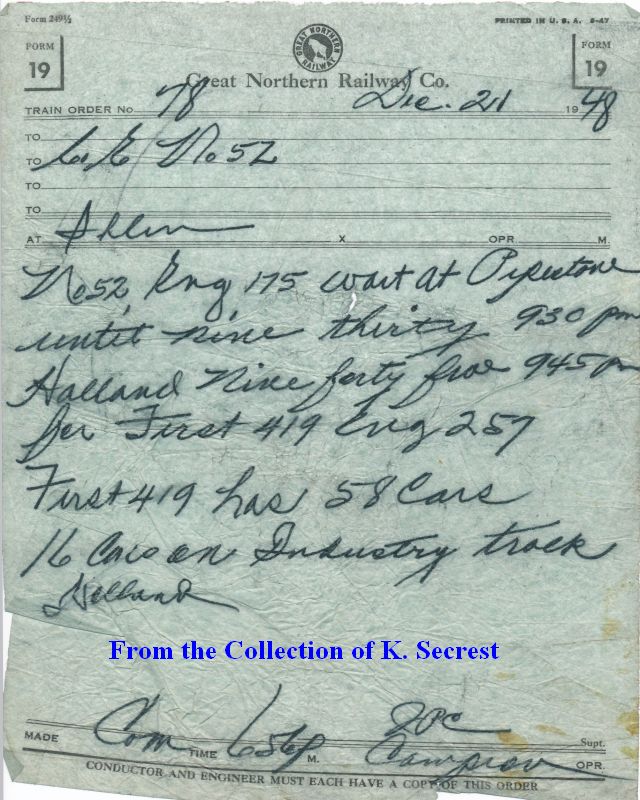 Form 249½
PRINTED IN U. S. A. 5-47
FORM
19
GREAT NORTHERN RAILWAY
FORM
19
Great Northern Railway Co.
TRAIN ORDER No. 78 Dec. 21 1948
TO
TO C&E No 52
TO
TO
AT X OPR. M.
No 52 Eng 175 wait at Pipestone
until nine thirty 930 pm
Holland Nine forty five 945 pm
for First 419 Eng 257
First 419 has 58 Cars
16 Cars on Industry track
Holland
From the Collection of K. Secrest
MADE Com TIME M. Supt.
OPR.
CONDUCTOR AND ENGINEER MUST EACH HAVE A COPY OF THIS ORDER